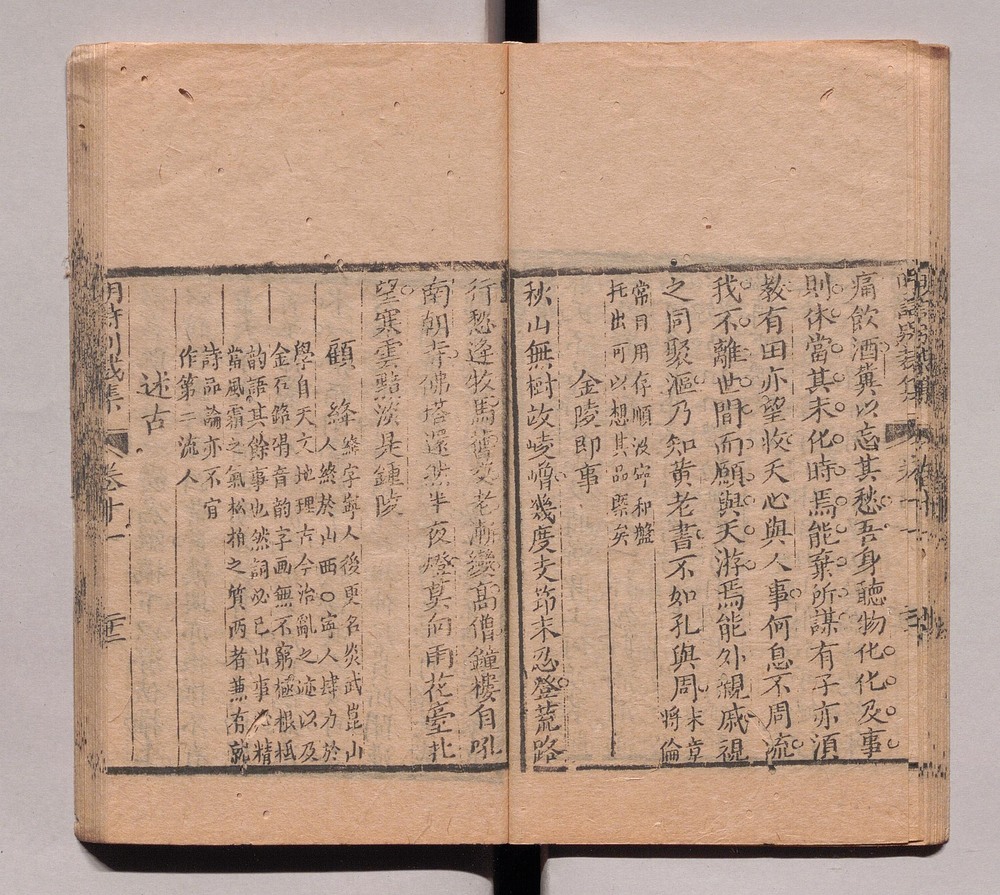 痛飲酒冀以忘其愁吾身聽物化化及事
則休當其未化時焉能棄所謀有子亦須
教有田亦望收天心與人事何息不周流
我不離世間而願與天游焉能外親戚視
之同聚漚乃知黄老書不如孔與周末章將倫
常日用存順沒寧和盤
托出可以想其品槩矣
金陵即事
秋山無樹故崚嶒幾度支笻未忍登荒路
行愁逢牧馬舊交老漸變高僧鐘樓自吼
南朝寺佛塔還然半夜燈莫向雨花臺北
望寒雲黯淡是鍾陵
顧絳絳字寧人後更名炎武崑山
人終於山西○寧人肆力於
學自天文地理古今治亂之迹以及
金石銘碣音韵字画無不窮極根柢
韵語其餘事也然詞必己出事必精
當風霜之氣松柏之質两者兼有就
詩品論亦不宜
作第二流人
述古
明詩别裁集
卷十一